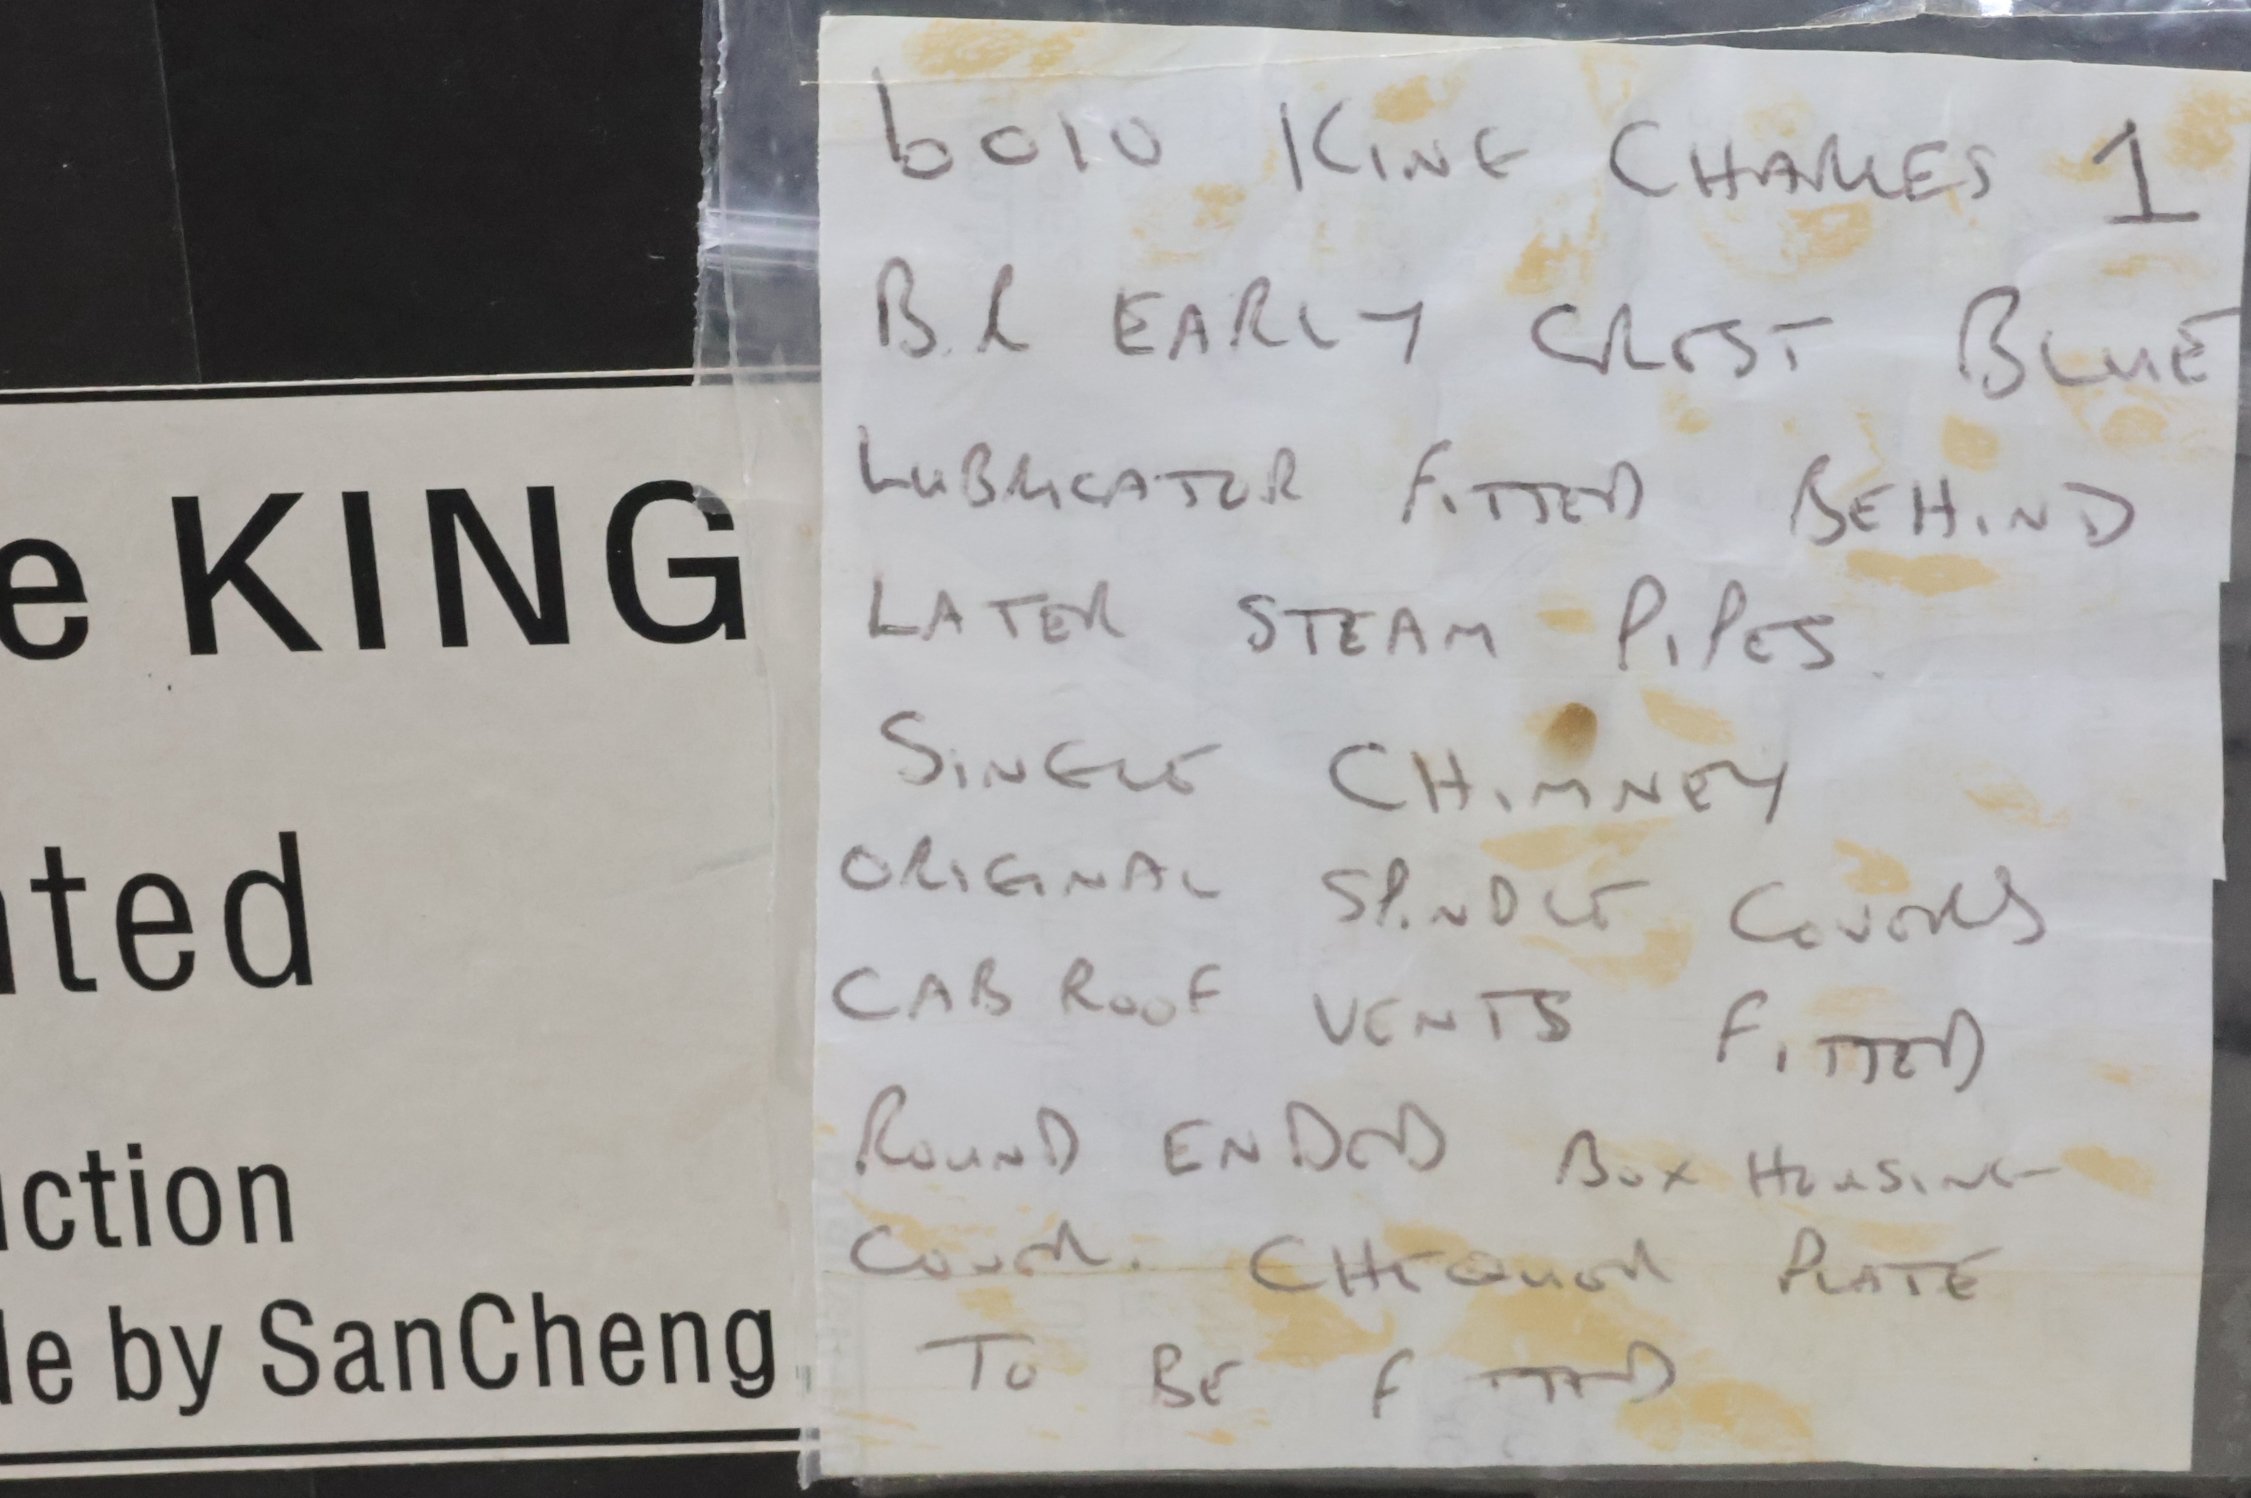 e KING
ated
uction
de by SanCheng
6010 KING CHARLES 1
B.R EARLY CREST BLUE
LUBRICATOR FITTED BEHIND
LATER STEAM PIPES.
SINGLE CHIMNEY
ORIGINAL SPINDLE COVERS
CAB ROOF VENTS FITTED
ROUND ENDED BOX HOUSING
COVER. CHEQUER PLATE
TO BE FITTED